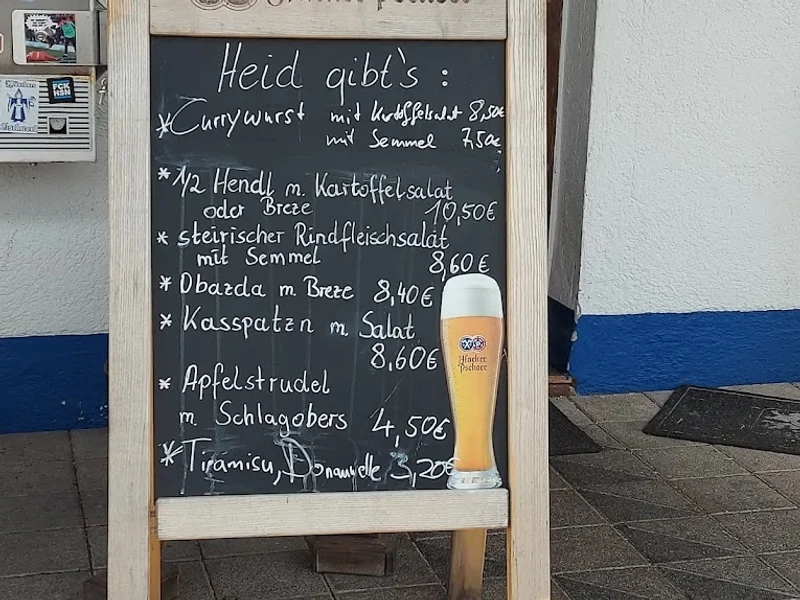 Hacker Pschorr
Heid gibt's :
* Currywurst mit Kartoffelsalat 8,50€
mit Semmel 7,50€
* 1/2 Hendl m. Kartoffelsalat
oder Breze 10,50€
* steirischer Rindfleischsalat
mit Semmel 8,60€
* Obazda m. Breze 8,40€
* Kasspatzn m. Salat
8,60€
* Apfelstrudel
m. Schlagobers 4,50€
* Tiramisu, Donauwelle 3,20€
Hacker
Pschorr
FCK
HSN